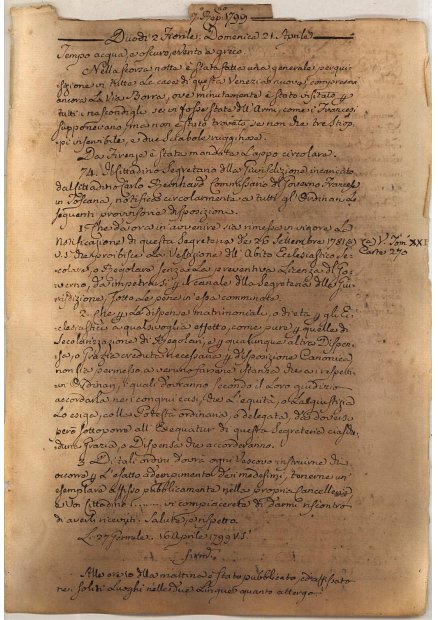 7º Rep. 1799
Duodì 2 Fiorile; Domenica 21. Aprile
Tempo acqua, e oscuro, e vento a greco.
Nella scorsa notte è stata fatta una generale perqui
sizione in tutte le case di questa Venezia nuova, compresavi
ancora la Via Borra, ove minutamente è stato visitato p
tutti i nascondigli se vi fosse state dell'Armi, come i Francesi
supponevano, ma non è stato trovato se non che tre Stiop
pi inservibili, e due Sciabole rugginose.
Da Firenze è stata mandata l'appo circolare.
74. Il Cittadino Segretario della Giurisdizione incaricato
dal Cittadino Carlo Reinhard Commissario del Governo Francese
in Toscana, notifica circolarmente a tutti gl'Ordinarj le
seguenti provvisorie disposizioni.
1. Che da ora in avvenire sia rimessa in vigore la
Notificazione di questa Segreteria de' 26 Settembre 1781 (a) (a) V. Tom. XXI
che proibisce la Vestizione dell'Abito Ecclesiastico se Carte 270
colare, o Regolare senza la preventiva Licenza di Go
verno, da impetrarsi p il canale della Segreteria della Giu
risdizione, sotto le pene in essa comminate.
2. Che p le Dispense matrimoniali, o di età p gl'Ec
clesiastici a qualsivoglia effetto, come pure p quelle di
Secolarizzazione di Regolari, e p qualunque altra Dispen
sa, o Grazia creduta necessaria p disposizione Canonica
non sia permesso a veruno farne istanza che ai rispetti
vi Ordinarj, i quali dovranno secondo il loro giudizio
accordarla nei congrui casi, che l'equità, o la giustizia
lo esiga, colla Potestà ordinaria, o delegata, dovendosi
però sottoporre all'Exequatur di questa Segreteria ciasche
duna Grazia, o Dispensa che accorderanno.
3. Di tali ordini dovrà ogni Vescovo istruirne chi
occorre p l'esatto adempimento dei medesimi, tenerne un
esemplare affisso pubblicamente nella propria Cancelleria
e Voi Cittadino ......... vi compiacerete di darmi riscontro
di averli ricevuti. Salute, e rispetto.
Li 27 Germile. 16 Aprile 1799 V.S.
Firm.
Alle ore 10 della mattina è stato pubblicato, ed affissato
nei soliti Luoghi nelle due Lingue quanto attergo.